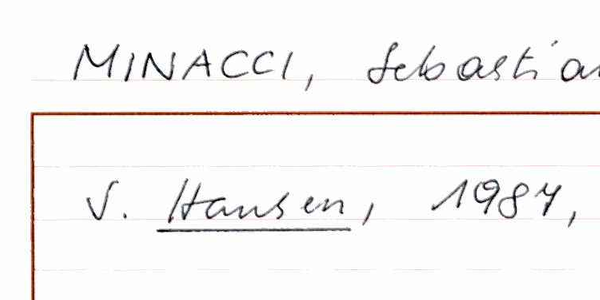 MINACCI, Sebastian
V. Hansen, 1987,